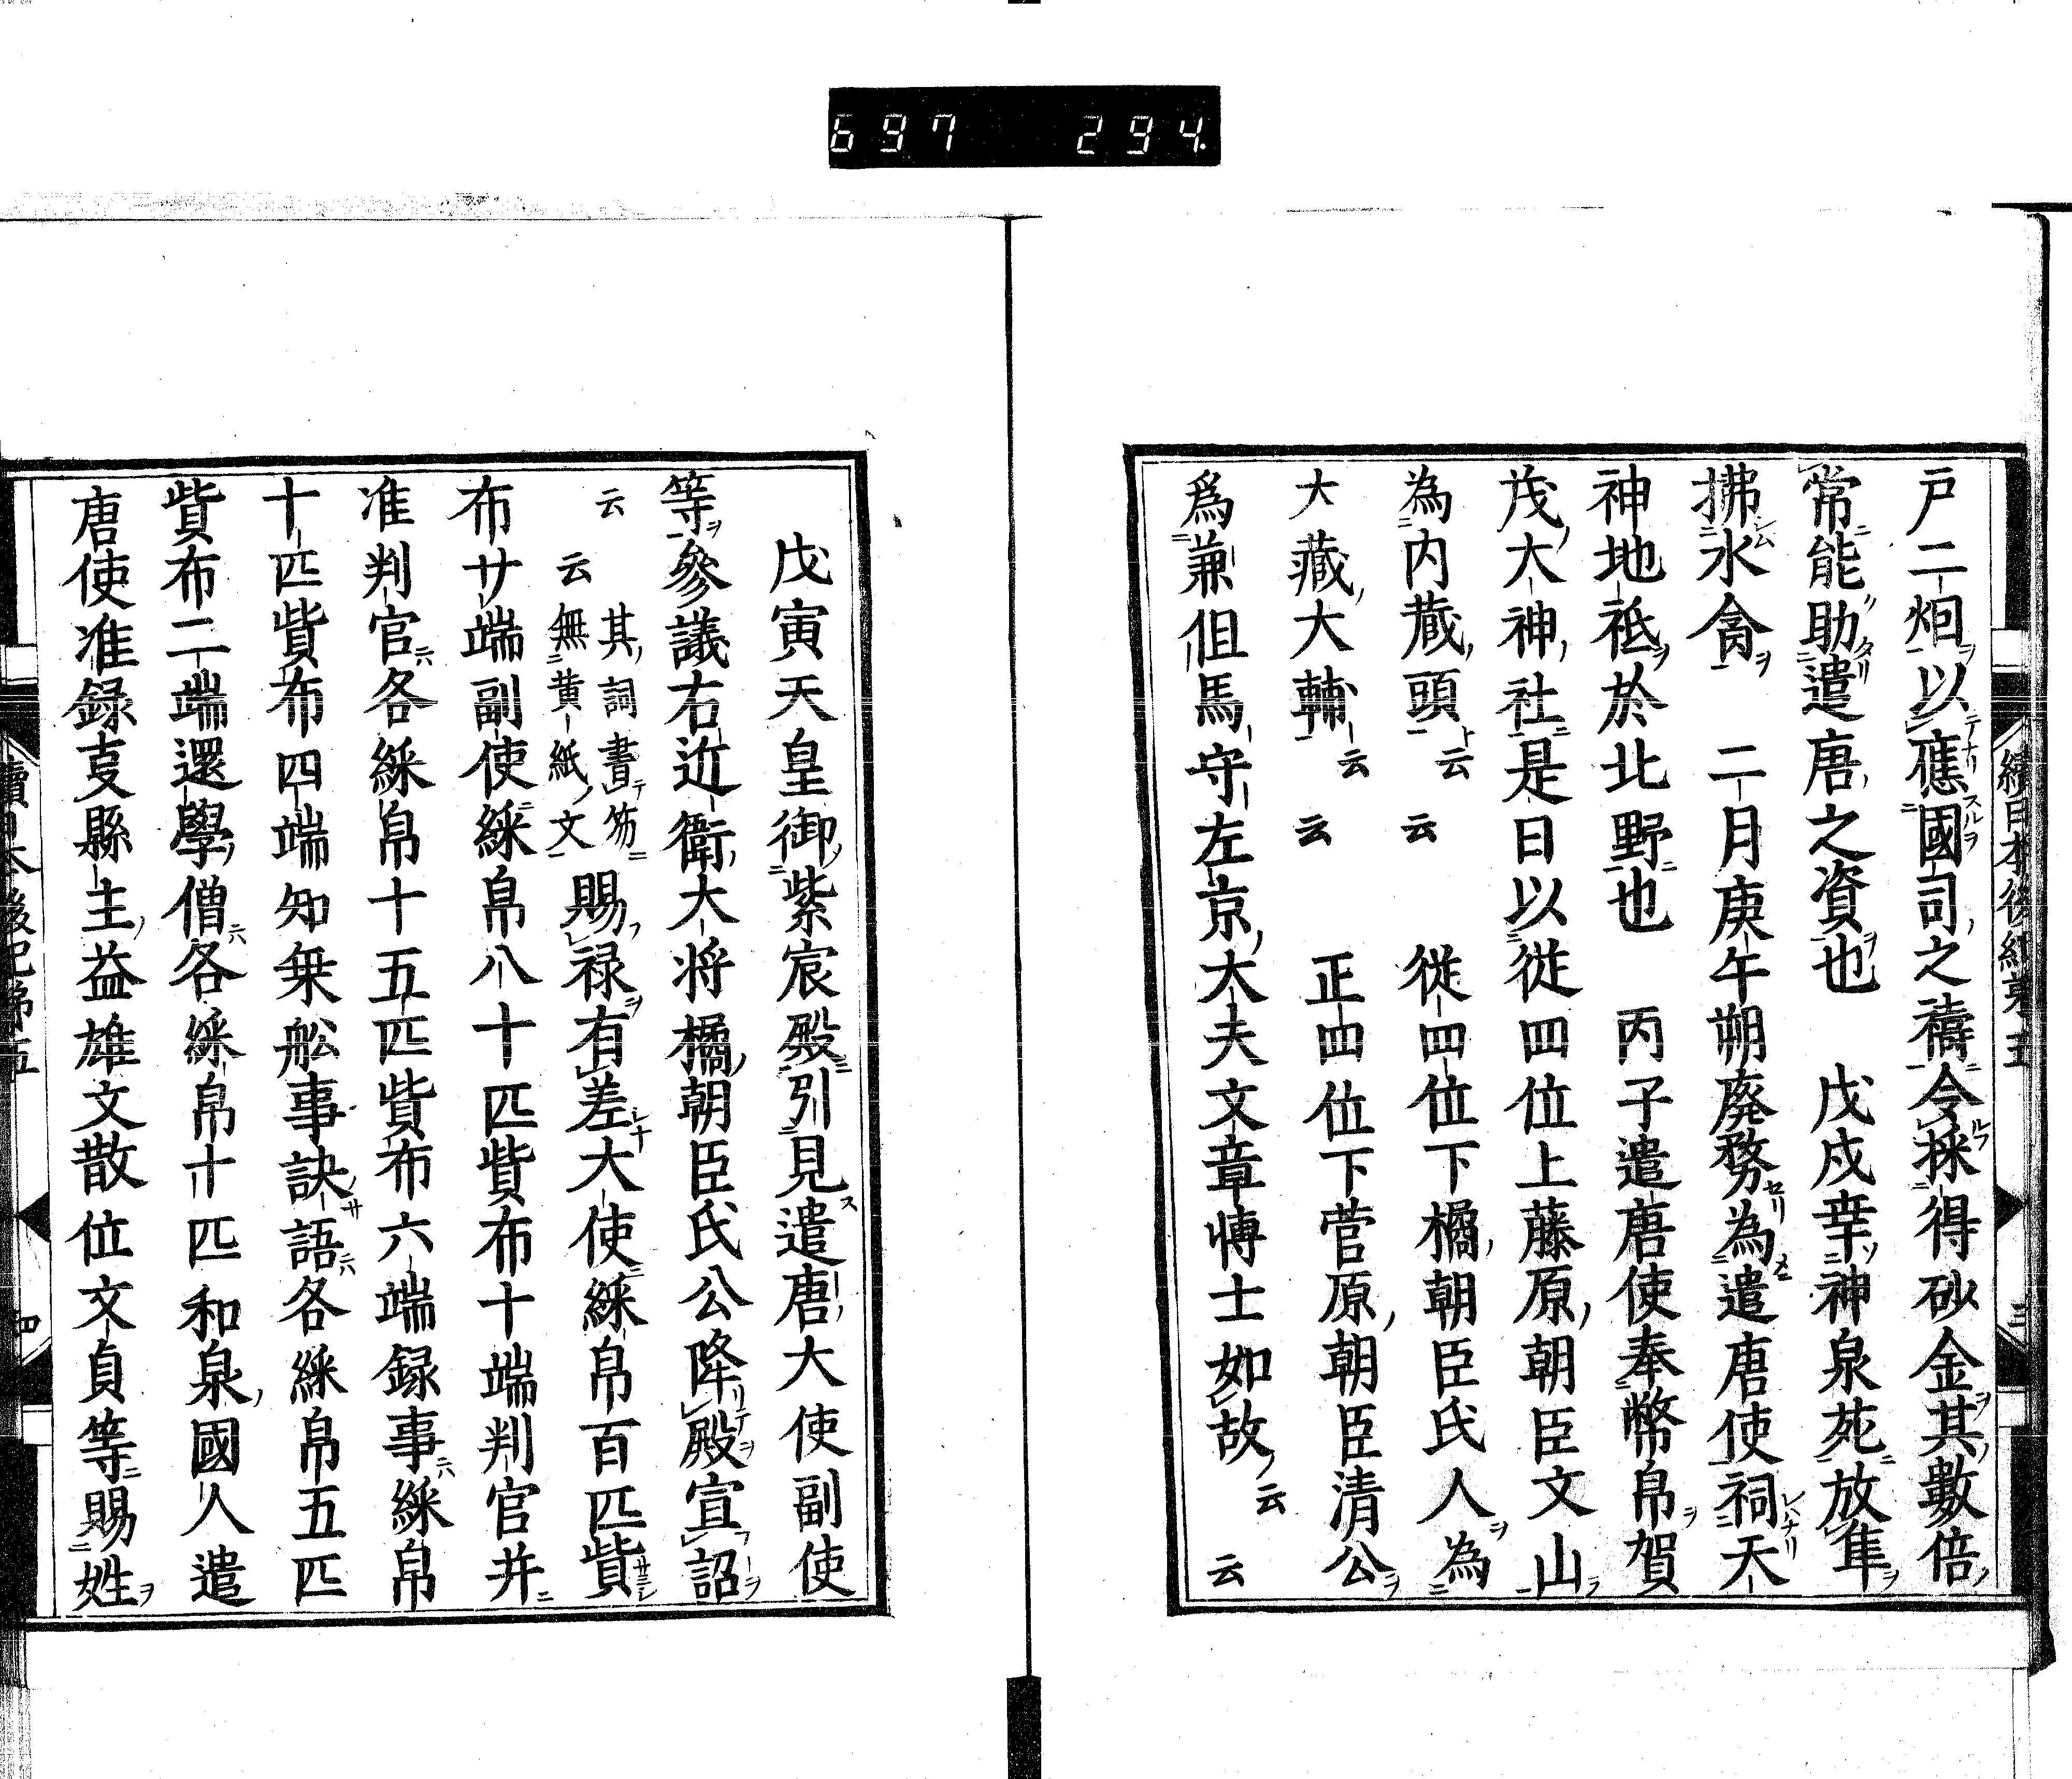 697 294.
續日本後紀第五 三
戸二烟以應國司之禱令採得砂金其數倍
常能助遣唐之資也 戊戌幸神泉苑放隼
拂水禽 二月庚午朔廢務為遣唐使祠天
神地祇於北野也 丙子遣唐使奉幣帛賀
茂大神社是日以從四位上藤原朝臣文山
為内蔵頭云云 從四位下橘朝臣氏人為
大藏大輔云云 正四位下菅原朝臣清公
爲兼但馬守左京大夫文章博士如故云云
戊寅天皇御紫宸殿引見遣唐大使副使
等參議右近衛大将橘朝臣氏公降殿宣詔
云云其詞書笏無黄紙文賜禄有差大使綵帛百匹貲
布廿端副使綵帛八十匹貲布十端判官并
准判官各綵帛十五匹貲布六端録事綵帛
十匹貲布四端知乗舩事訣語各綵帛五匹
貲布二端還學僧各綵帛十匹和泉國人遣
唐使准録事縣主益雄文散位文貞等賜姓
續日本後紀第五 四